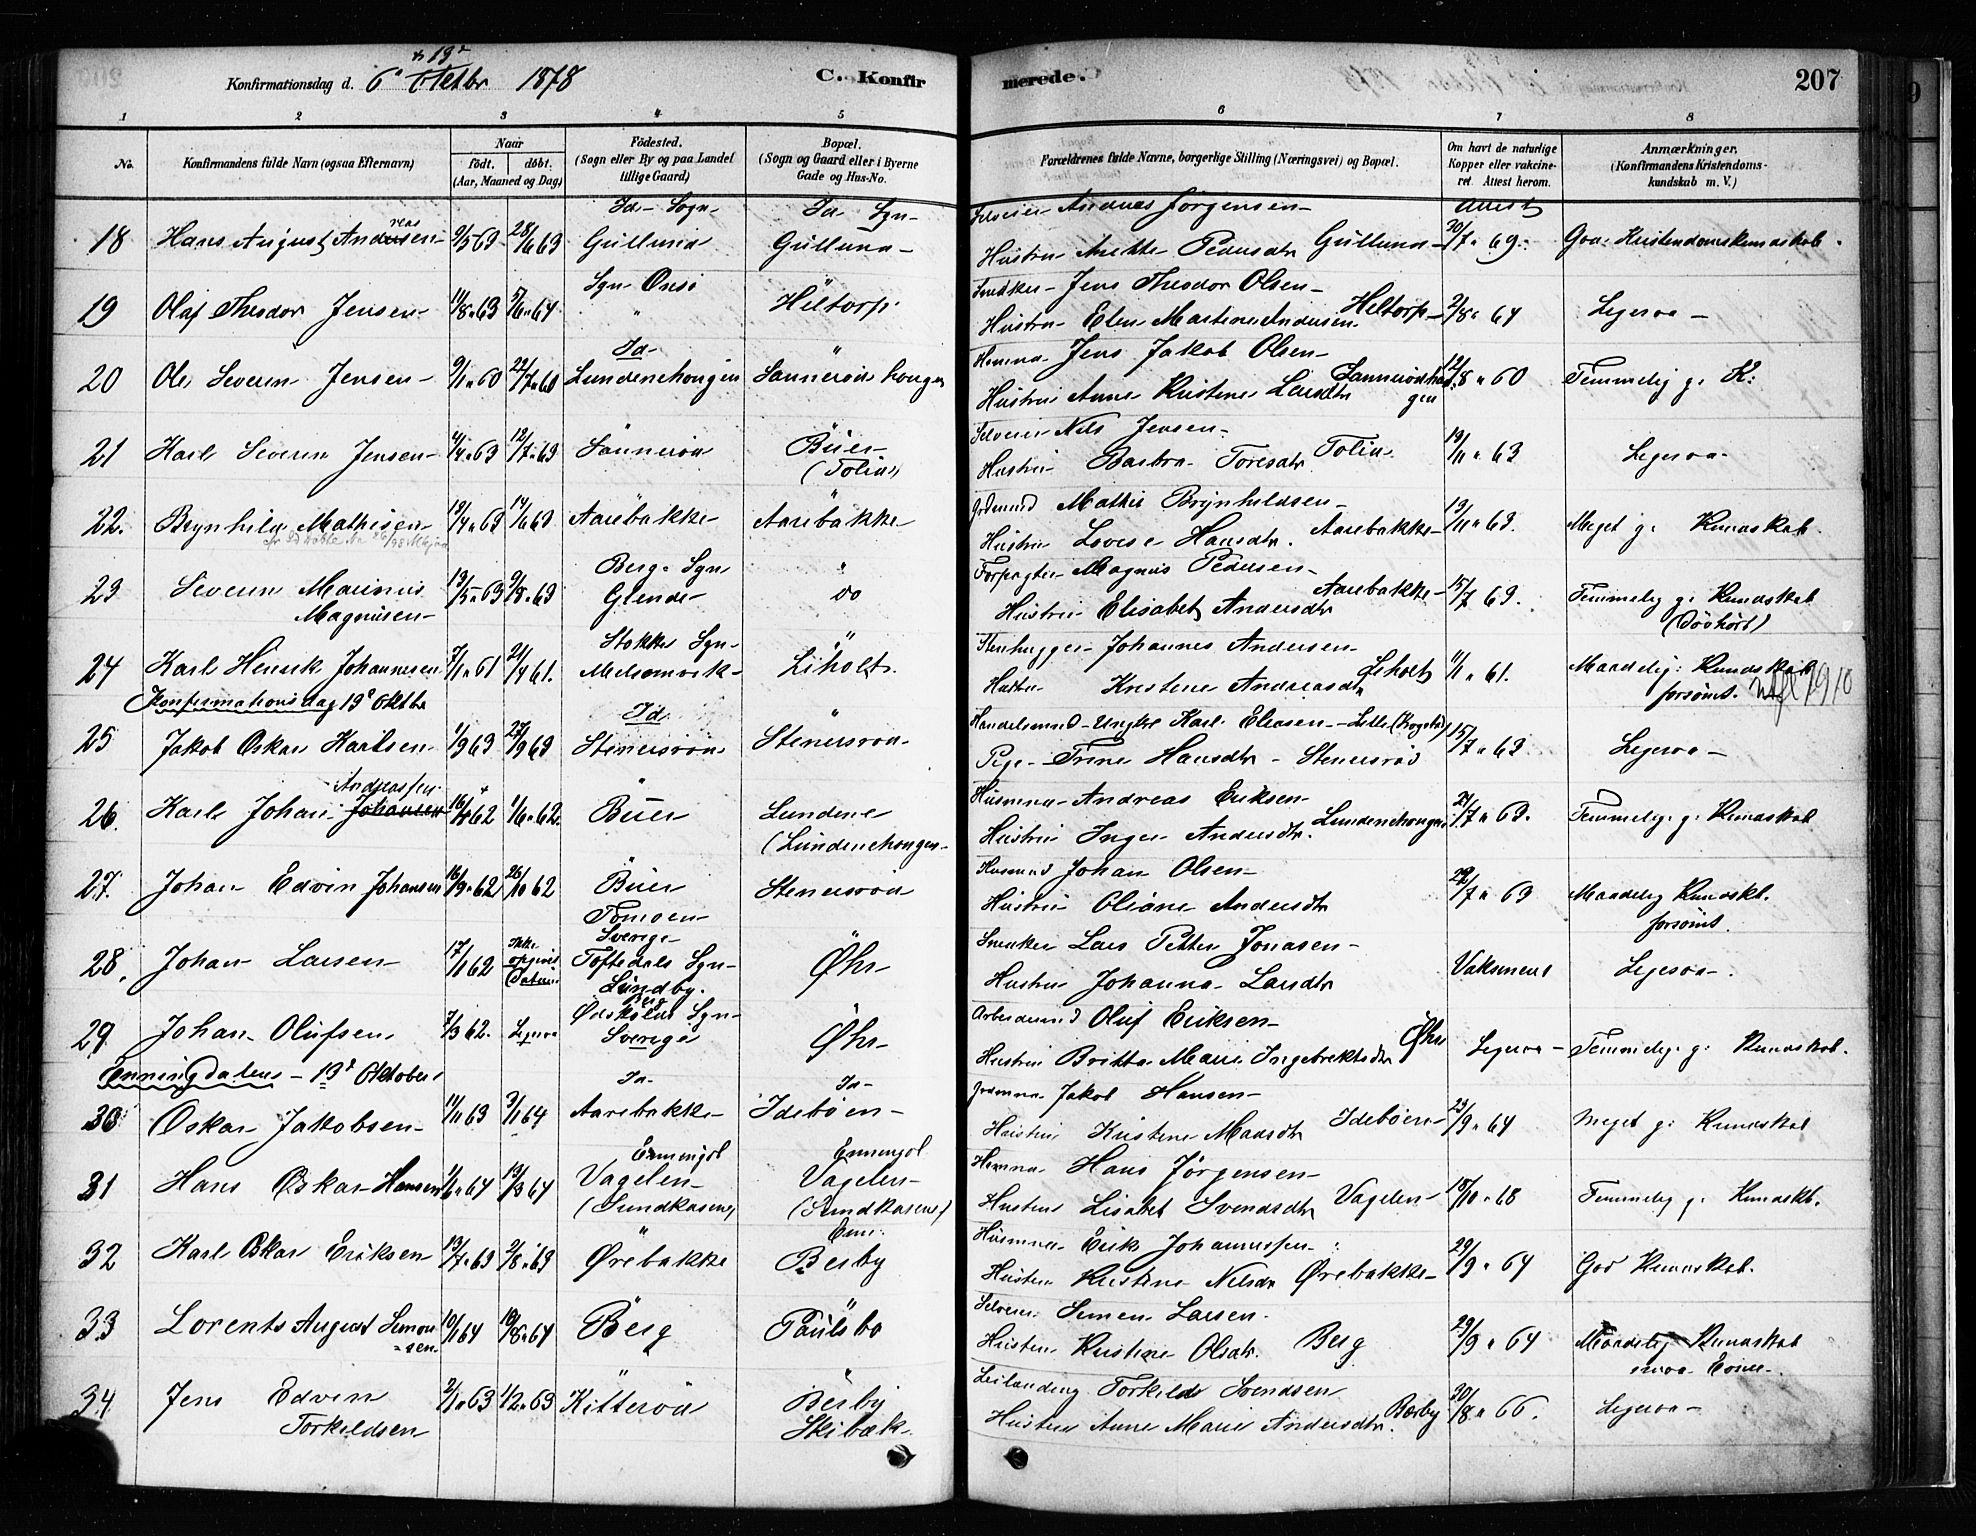 Konfirmationsdag d. 6te Oktbr 1878
& 13de
C. Konfirmerede.
207
1 2 3 4 5 6 7 8
No. Konfirmandens fulde Navn (ogsaa Efternavn) Naar født. døbt. (Aar, Maaned og Dag) Fødested. (Sogn eller By og paa Landet tillige Gaard) Bopæl. (Sogn og Gaard eller i Byerne Gade og Hus-No. Forældrenes fulde Navne, borgerlige Stilling (Næringsvei) og Bopæl. Om havt de naturlige Kopper eller vakcineret. Attest herom. Anmærkninger. (Konfirmandens Kristendomskundskab m. V.)
Id Sogn Id Sgn Selveier Andreas Jørgensen Attest
18 Hans August Andreasen 9/5 63 28/6 63 Gullund Gullund Hustru Gullund 30/7 69 God Kristendomskundskab
Sgn Onsø Snedker Jens Theodor Olsen
19 Olaf Theodor Jensen 11/8 63 5/6 64 " Hiltorp Hustru Elen Martine Andersen Hiltorp 2/8 64 Ligesaa
Id " Jens Jakob Olsen
20 Ole Severin Jensen 9/1 60 22/7 60 Lundenehougen Sannerød hougen Hustru Anne Kristine Larsdtr Sannerødhougen 12/8 60 Temmelig g: K:
Selveier Nils Jensen
21 Karl Severin Jensen 4/4 63 12/7 63 Sannerød Büer (Tolin) Hustru Barbra Toresdtr 19/11 63 Ligesaa
Mathis Brynhildsen
22. Brynhild Mathisen 13/4 63 14/6 63 Aarebakke Aarebakke Hustru Lovise Hansdtr. Aarebakke 13/11 63. Meget g: Kundskab
Berg Sgn " Forpagter Magnus Pedersen
23 Severin Marinus Magnusen 13/5 63 9/8 63 Glende do Hustru Elisabet Andersdtr Aarebakke 15/7 63. Temmelig g: Kundskab (Døvhørt)
Stokke Sgn " Stenhugger Johannes Andersen
24 Karl Henrik Johannesen 7/1 61 21/4 61. Melsomvik Liholt Hustru Kristine Andreasdtr Liholt 11/11 61. Maadelig Kundskab forsømt. 1910
Konfirmationsdag 13de Oktbr
Id " Handelsmand Ungkl Karl Eliasen
25 Jakob Oskar Karlsen 1/9 63 27/9 63 Stenersrød Stenersrød Pige Trine Hansdtr Stenersrød 15/7 63 Ligesaa
Andreassen Husmnd Andreas Eriksen
26. Karl Johan Johansen 16/4 62 1/6 62. Büer Lundene (Lundenehougen) Hustru Inger Andersdtr. Lundenehougen 21/7 63. Temmelig g: Kundskab
Husmnd Johan Olsen
27. Johan Edvin Johansen 16/9 62 26/10 62 Büer Tomoen Stenersrød Hustru Oliane Andersdtr 22/7 63 Maadelig Kundskb. forsømt.
Sverige Lars Petter Jonasen
28. Johan Larsen 17/1 62 Ikke opgivet Datum Toftedals Sgn Lundby. Øhr Hustru Johanna Larsdtr Vaksineret Ligesaa
Berg Ødskølds Sgn Arbeidsmnd Oluf Eriksen
29. Johan Olufsen 7/3 62. Ligesaa Sverige Øhr Hustru Britta Marie Ingebrektsdtr Øhr Ligesaa Temmelig g: Kundskab.
Enningdalens 13de Oktober
Id Id Jakob Hansen
30 Oskar Jakobsen 11/11 63 3/1 64 Aarebakke Idebøen Hustru Kristine Madsdtr Idebøen 23/9 64 Meget g: Kundskab
Enningdl Enningdl Hans Jørgensen
31 Hans Oskar Hansen 1/1 64 13/3 64 Vagelen (Sundkasene) Vagelen (Sundkasene) Hustru Lisabet Svendsdtr Vagelen 18/10 68 Temmelig g: Kundskb.
" Enn. Husmnd Erik Johannessen
32 Karl Oskar Eriksen 13/7 63 2/8 63 Ørebakke Berby Hustru Kristine Nilsdr Ørebakke 29/9 64 God Kundskab.
" " Selveier Simen Larsen
33 Lorents August Simonsen 10/1 64 10/8 64 Berg Paulsbo Hustru Kristine Olsdtr. Berg 29/9 64 Maadelig Kundskab smaa Evner
" " Leilænding Torkild Svendsen
34 Jens Edvin Torkildsen 2/1 63 1/2 63 Kitterød Berby Skibæk Hustru Anne Marie Andersdtr. Berby 20/8 66. Ligesaa